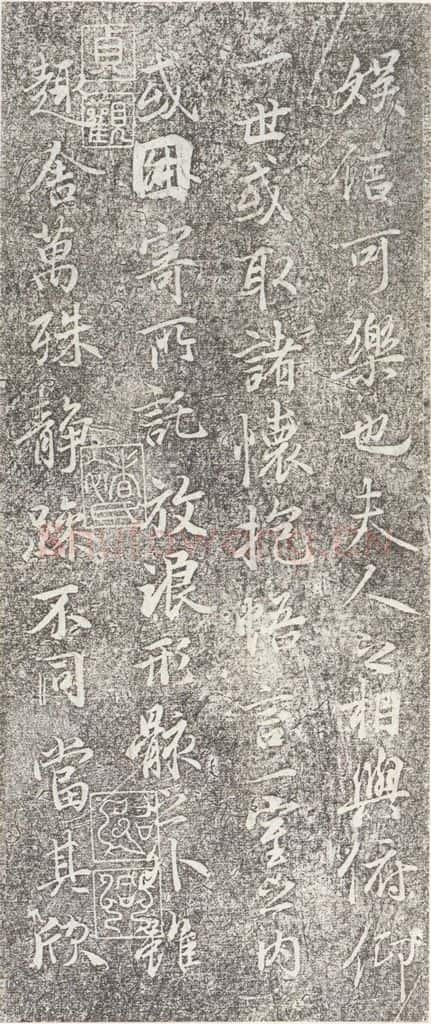 娛信可樂也夫人之相與俯仰
一世或取諸懷抱悟言一室之内
或因寄所託放浪形骸之外雖
趣舍萬殊静躁不同當其欣
貞觀